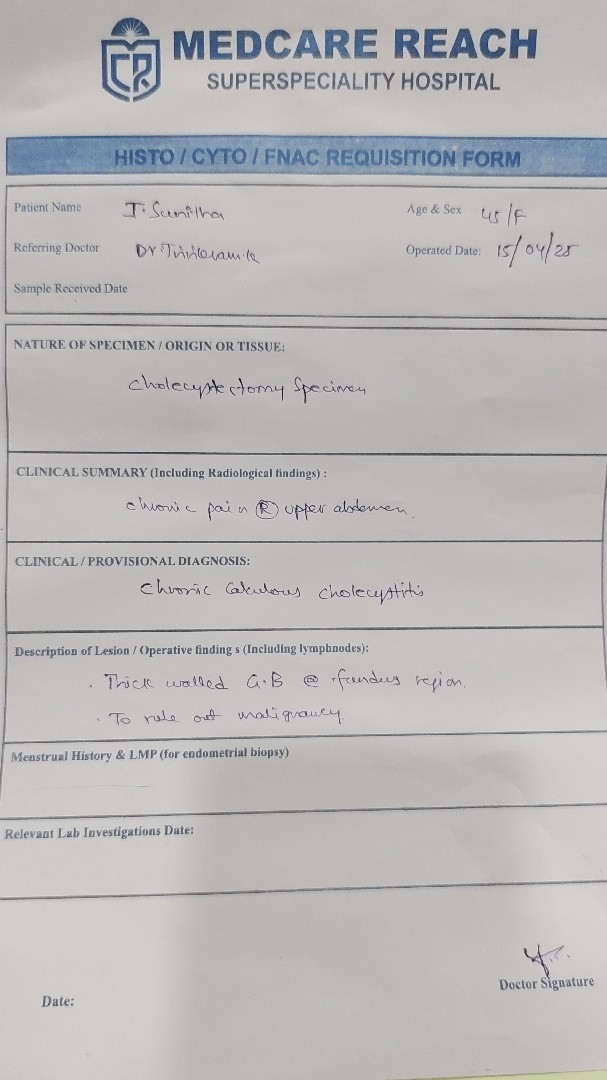 MEDCARE REACH
SUPERSPECIALITY HOSPITAL
HISTO / CYTO / FNAC REQUISITION FORM
Patient Name I. Sunitha Age & Sex 45/F
Referring Doctor Dr. Operated Date: 15/04/25
Sample Received Date
NATURE OF SPECIMEN / ORIGIN OR TISSUE:
Cholecystectomy Specimen
CLINICAL SUMMARY (Including Radiological findings) :
chronic pain Ⓡ upper abdomen.
CLINICAL / PROVISIONAL DIAGNOSIS:
Chronic Calculous cholecystitis
Description of Lesion / Operative finding s (Including lymphnodes):
. Thick walled G.B @ fundus region.
. To rule out malignancy.
Menstrual History & LMP (for endometrial biopsy)
Relevant Lab Investigations Date:
Doctor Signature
Date: